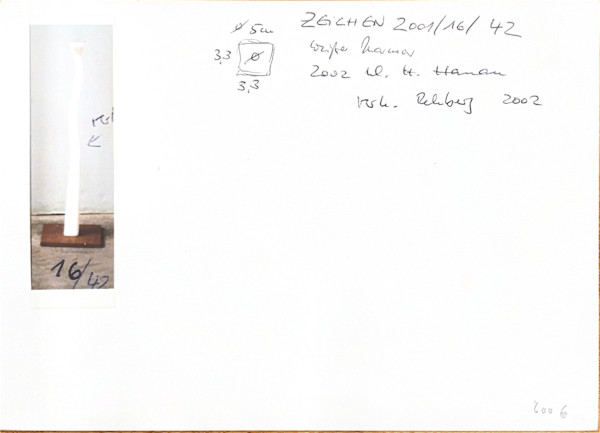 ZEICHEN 2001/16/42
weißer Marmor
2002 W. H. Hanau
verk. Rehberg 2002
ø 5cm
3,3
ø
3,3
verk
16/42
200 €